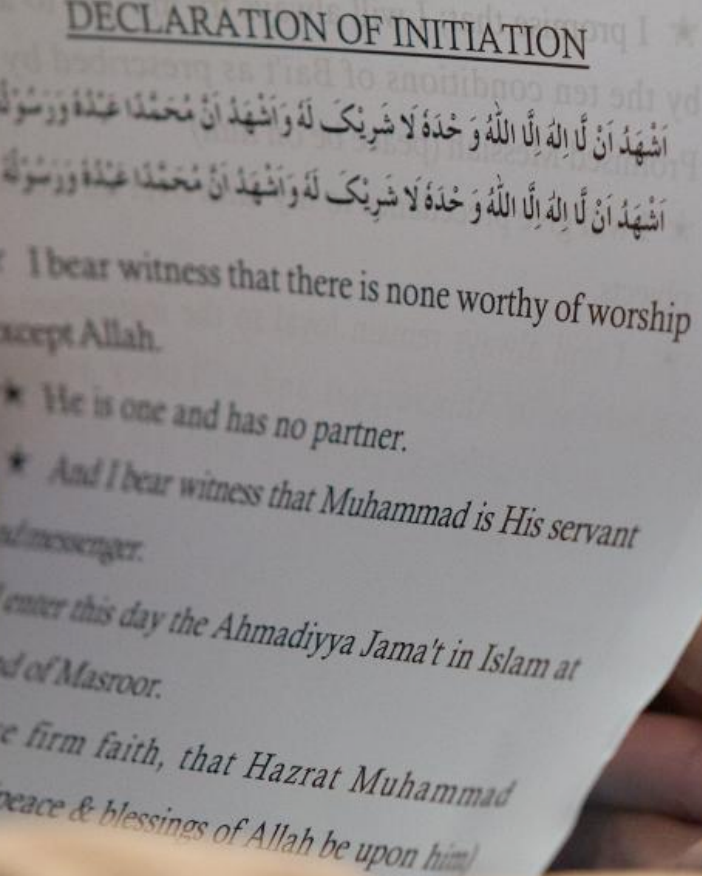 DECLARATION OF INITIATION
اَشْهَدُ اَنْ لَّا اِلٰهَ اِلَّا اللّٰهُ وَ حْدَهٗ لَا شَرِيْکَ لَهٗ وَاَشْهَدُ اَنَّ مُحَمَّدًا عَبْدُهٗ وَرَسُوْلُهٗ
اَشْهَدُ اَنْ لَّا اِلٰهَ اِلَّا اللّٰهُ وَ حْدَهٗ لَا شَرِيْکَ لَهٗ وَاَشْهَدُ اَنَّ مُحَمَّدًا عَبْدُهٗ وَرَسُوْلُهٗ
I bear witness that there is none worthy of worship
xcept Allah.
★ He is one and has no partner.
★ And I bear witness that Muhammad is His servant
nd messenger.
I enter this day the Ahmadiyya Jama't in Islam at
nd of Masroor.
e firm faith, that Hazrat Muhammad
peace & blessings of Allah be upon him)